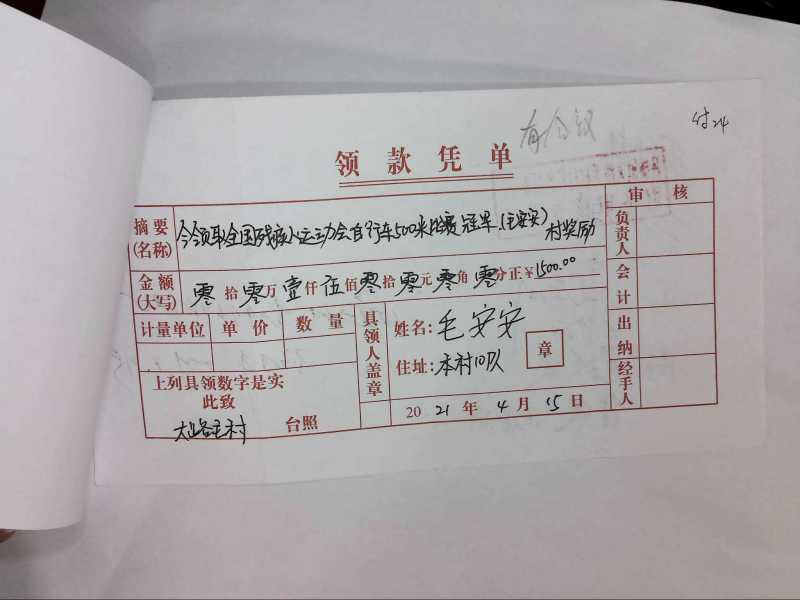 有会议
付24
领款凭单
审核
摘要(名称) 今领取全国残疾人运动会自行车500米比赛冠军(毛安安)村奖励
负责人
金额(大写) 零拾零万壹仟伍佰零拾零元零角零分正¥1500.00
会计
计量单位 单价 数量
具领人盖章
姓名:毛安安
住址:本村10队
章
出纳
上列具领数字是实
此致
台照
经手人
2021年4月15日